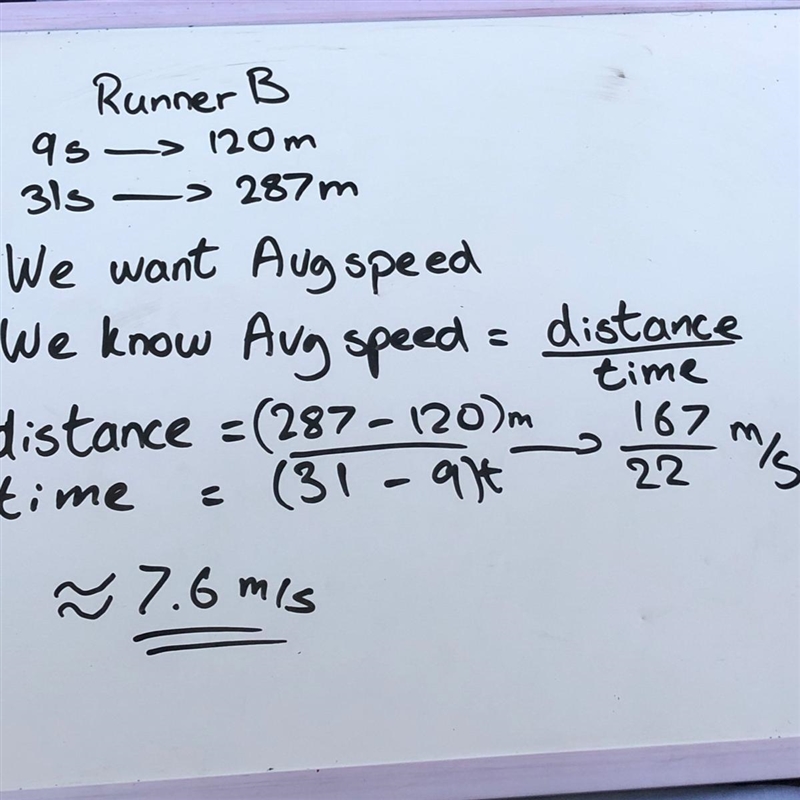 Runner B
9s → 120m
31s → 287m
We want Avg speed
We know Avg speed = distance/time
distance = (287 - 120)m → 167/22 m/s
time = (31 - 9)t
≈ 7.6 m/s